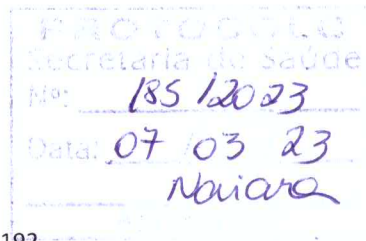 PROTOCOLO
Secretaria de Saúde
Nº: 185/2023
Data: 07 03 23
Naiara
192